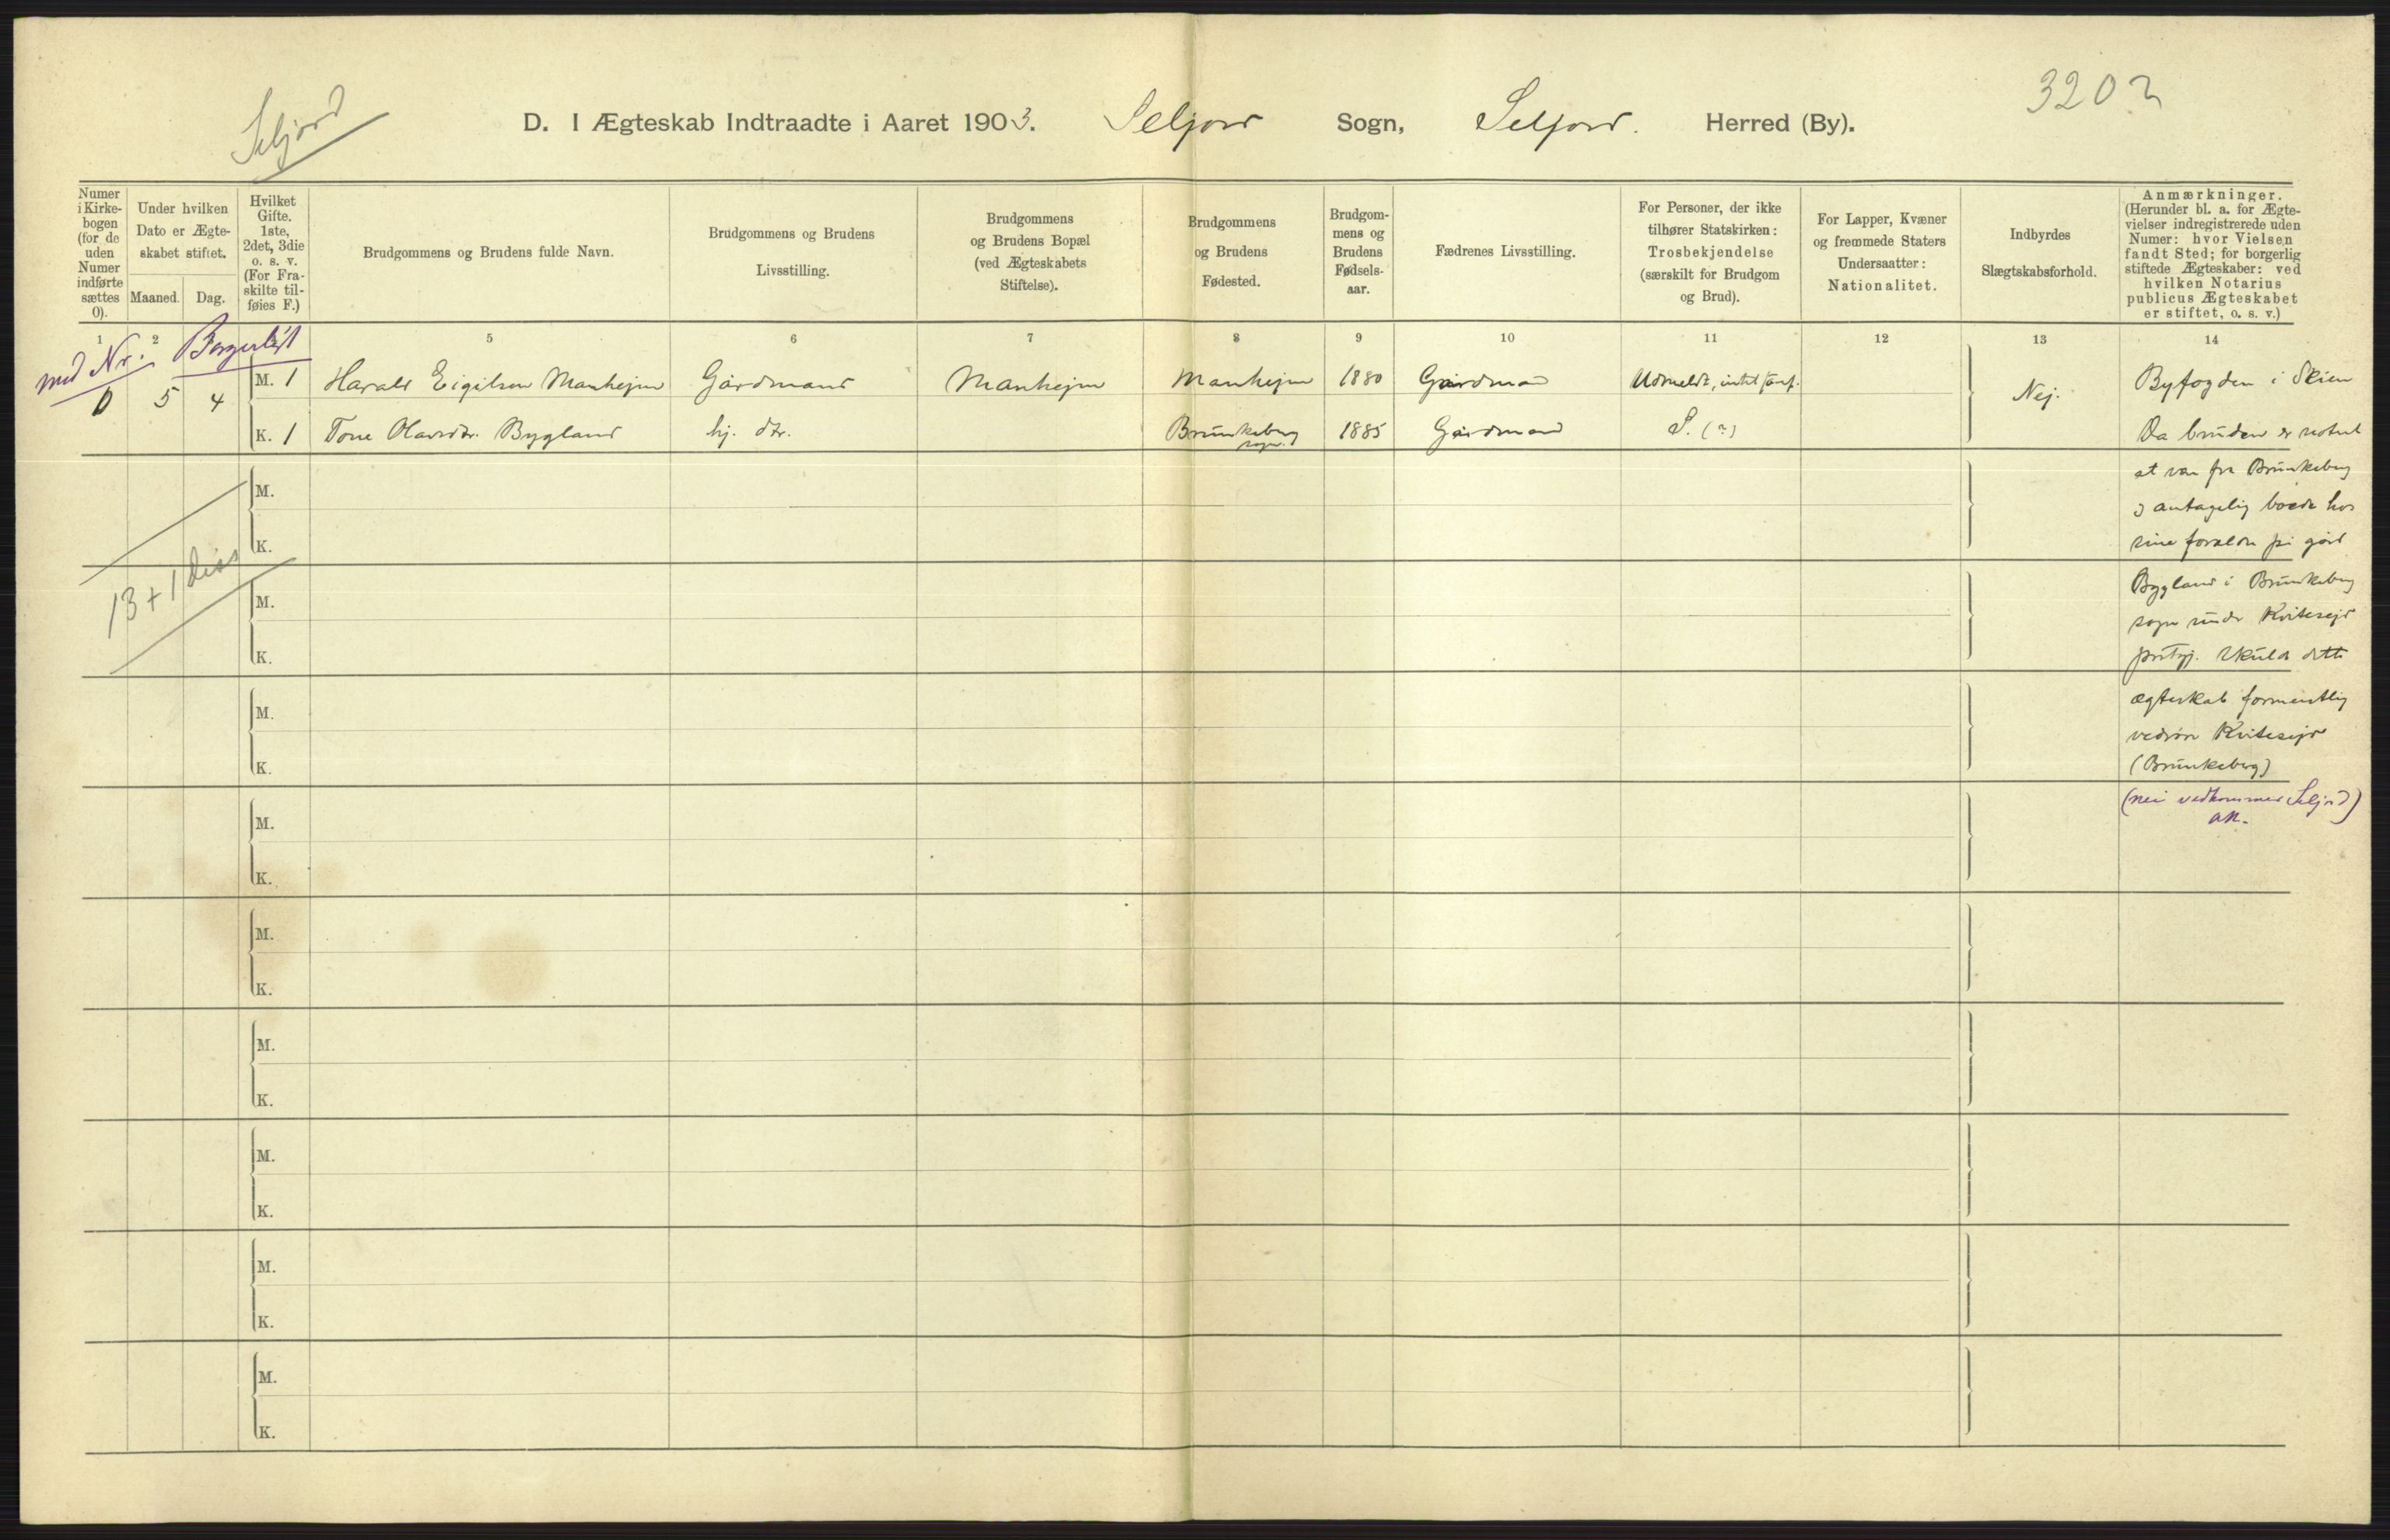 Seljord
D. I Ægteskab Indtraadte i Aaret 1903. Seljord Sogn, Seljord. Herred (By).
3202
Numer i Kirke-bogen (for de uden Numer indførte sættes 0).
Under hvilken Dato er Ægte-skabet stiftet.
Maaned. Dag.
Hvilket Gifte. 1ste, 2det, 3die o. s. v. (For Fra-skilte til-føies F.)
Brudgommens og Brudens fulde Navn.
Brudgommens og Brudens Livsstilling.
Brudgommens og Brudens Bopæl (ved Ægteskabets Stiftelse).
Brudgommens og Brudens Fødested.
Brudgom-mens og Brudens Fødsels-aar.
Fædrenes Livsstilling.
For Personer, der ikke tilhører Statskirken: Trosbekjendelse (særskilt for Brudgom og Brud).
For Lapper, Kvæner og fremmede Staters Undersaatter: Nationalitet.
Indbyrdes Slægtskabsforhold.
Anmærkninger. (Herunder bl. a. for Ægte-vielser indregistrerede uden Numer: hvor Vielsen fandt Sted; for borgerlig stiftede Ægteskaber: ved hvilken Notarius publicus Ægteskabet er stiftet, o. s. v.)
1 2 5 6 7 8 9 10 11 12 13 14
med Nr. Borgerligt
0 5 4
M. 1 Harald Eigilsen Manhejm Gårdmand Manhejm Manhejm 1880 Gårdmand Udmeldt, intet samf. Nej. Byfogden i Skien
K. 1 Tone Olavsdtr. Bygland hj. dtr. Brunkeberg sogn. 1885 Gårdmand S. (?) Da bruden er
at var fra Brunkeberg
antagelig boede hos
sine forældre på gård
Bygland i Brunkeberg
sogn under Kvitesejd
prstgj. skulde dette
ægteskab formentlig
vedrøre Kvitesejd
(Brunkeberg)
(nei vedkommer Seljord)
AK.
13 + 1 diss
M.
K.
M.
K.
M.
K.
M.
K.
M.
K.
M.
K.
M.
K.
M.
K.
M.
K.